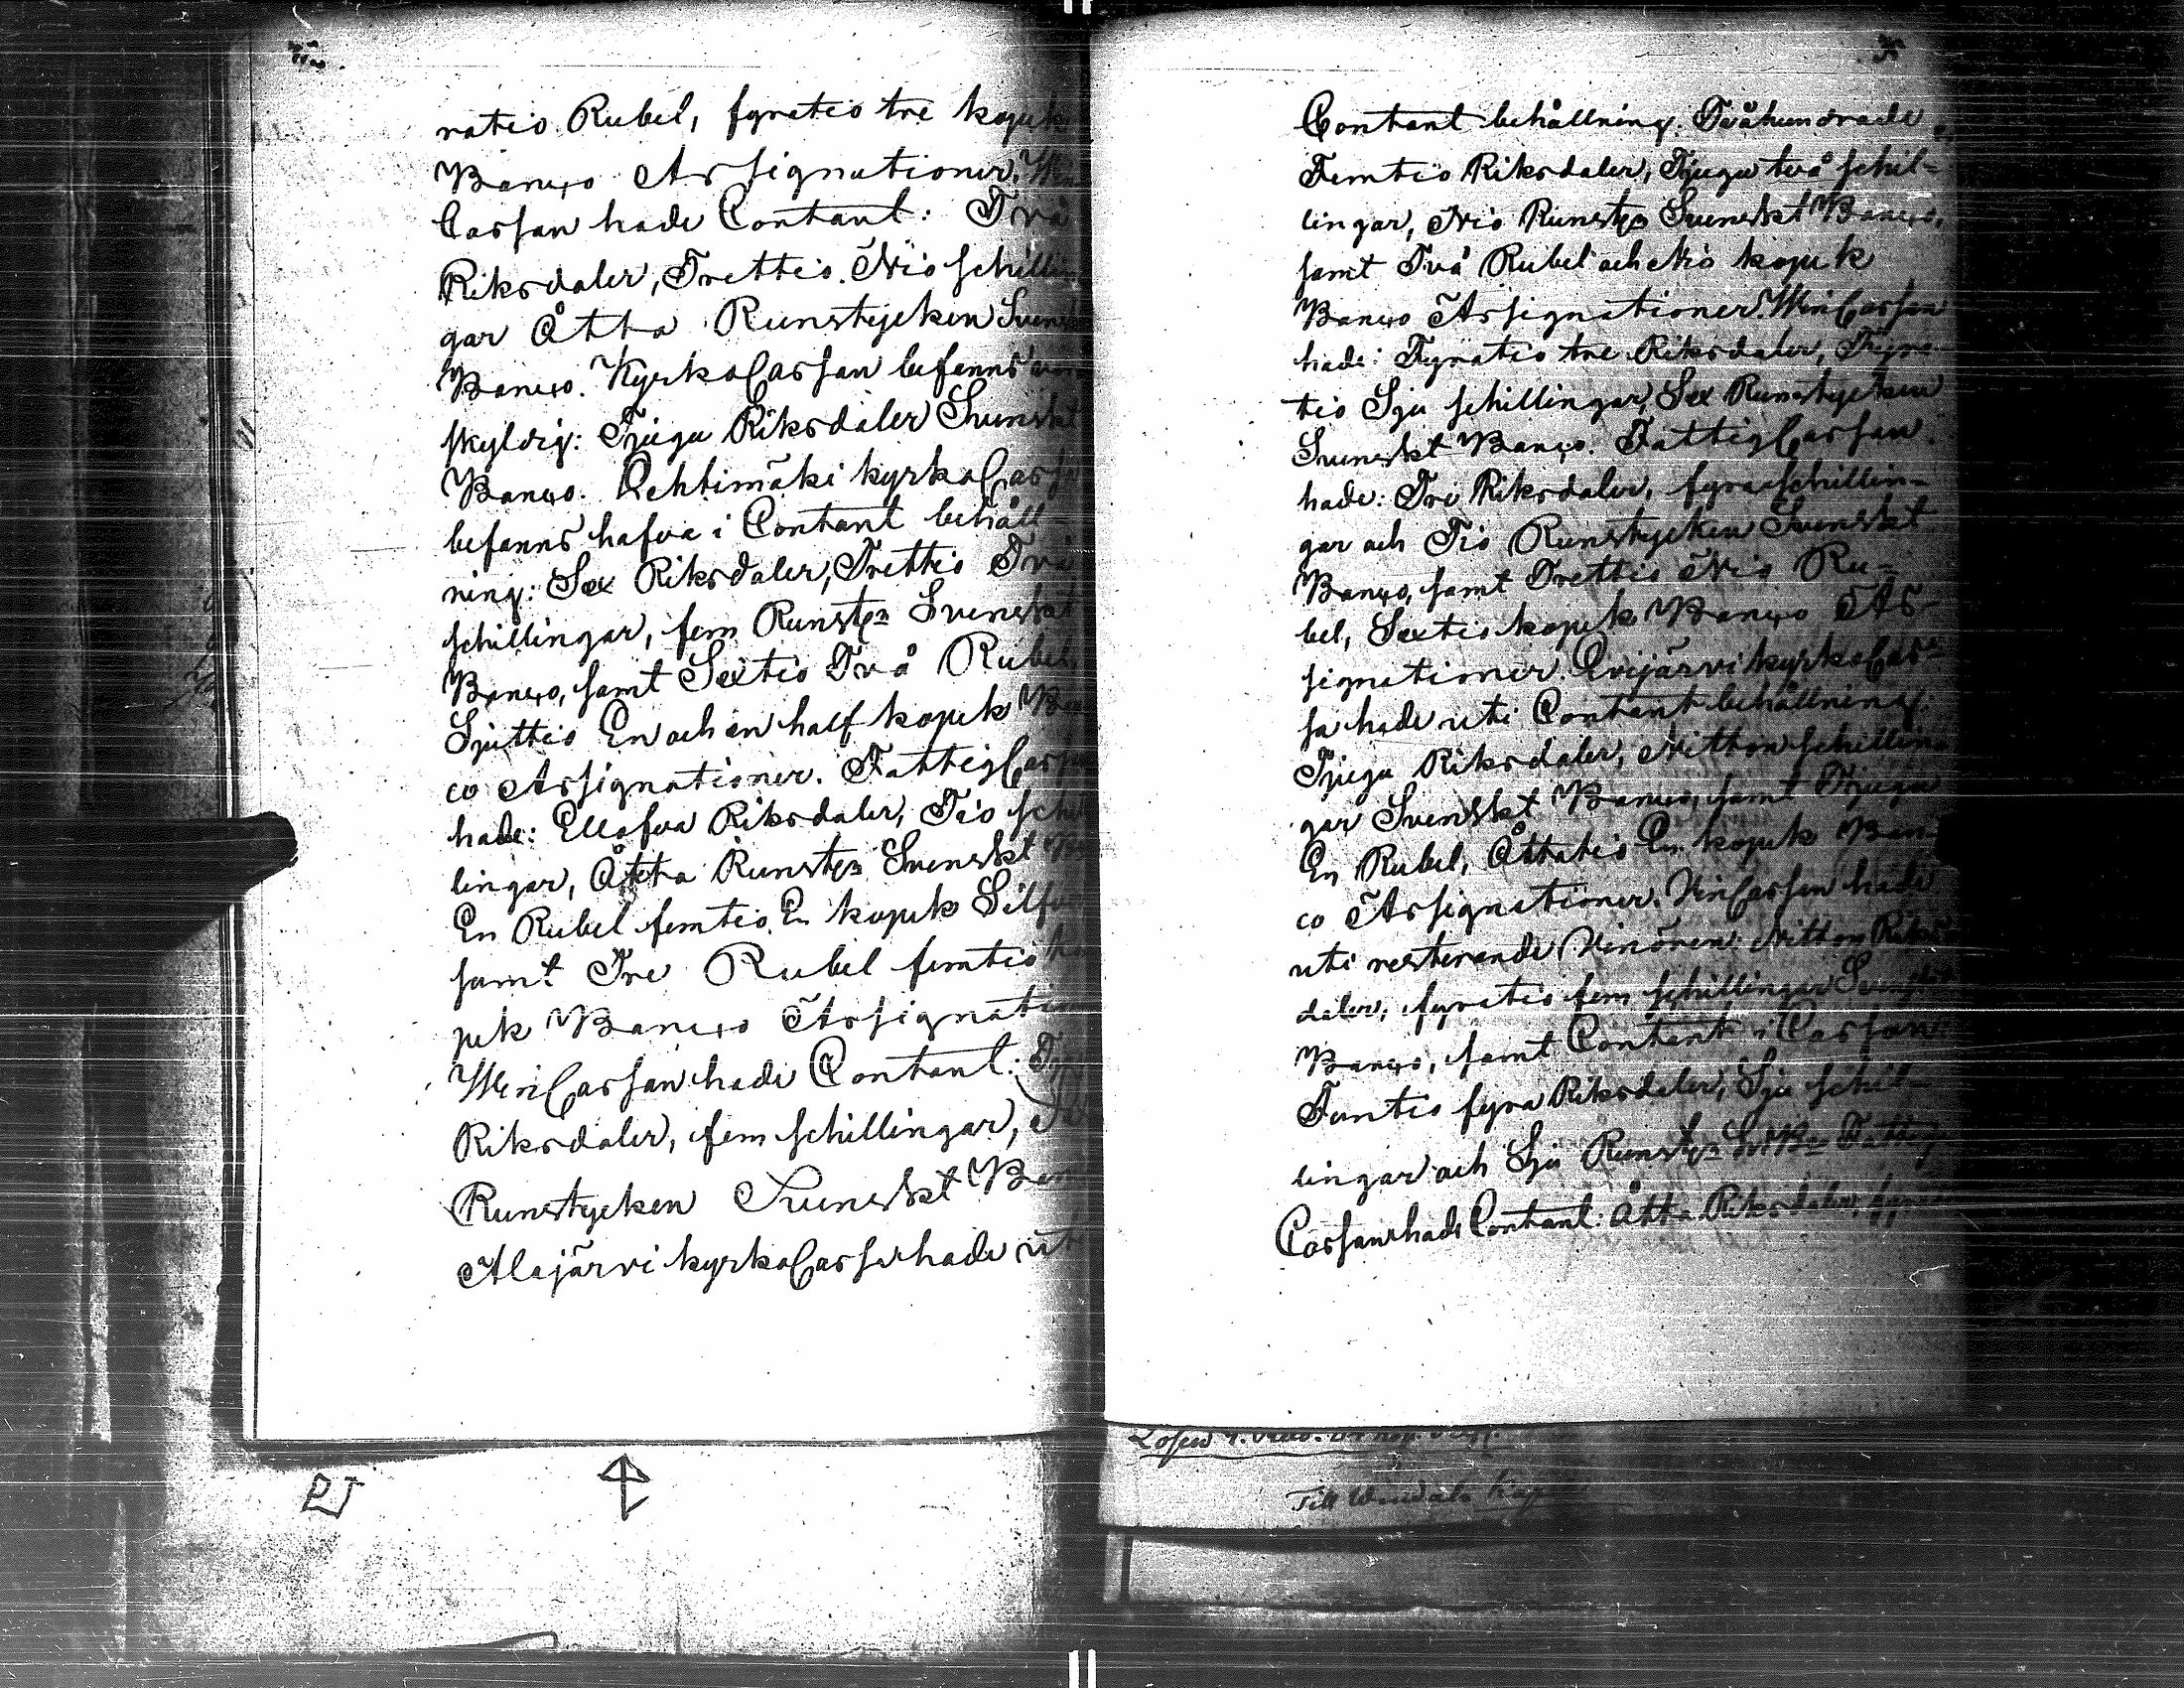 ratio Rubel, fyratio tre kopek
Banco Assignationer. Win
Cassan hade Contant: Två
Riksdaler, Trettio Nio schillin
gar Åtta Runstycken Svenskt
Banco. KyrkoCassan befanns vara
skyldig: Tjugu Riksdaler Svenskt
Banco. Lehtimäki kyrkoCassa
befanns hafva i Contant behåll=
ning: Sex Riksdaler, Trettio Två
schillingar, fem Runst:r Svenskt
Banco, samt Sextio Två Rubel
Sjuttio En och en half kopek Ban
co Assignationer. FattigCassan
hade: Ellofva Riksdaler, Tio schil
lingar, Åtta Runst:r Svenskt
En Rubel femtio En kopek Silfver
samt Tre Rubel femtio ko
pek Banco Assignatio
WinCassan hade Contant:
Riksdaler, fem schillingar,
Runstycken Svenskt Ban
Alajärvi kyrkoCassa hade uti
Contant behållning: Tvåhundrade
Femtio Riksdaler, Tjugu två schil=
lingar, Nio Runst:r Svenskt Banco,
samt Två Rubel och Nio kopek
Banco Assignationer. WinCassan
hade: Fyratio tre Riksdaler, Fyra
tio Sju schillingar, Sex Runstycken
Svenskt Banco. FattigCassan
hade: Tre Riksdaler, fyra schillin=
gar och Tio Runstycken Svenskt
Banco, samt Trettio Nio Ru=
bel, Sextio kopek Banco As=
signationer. Evijärvi kyrkoCas=
sa hade uti Contant behållning:
Tjugu Riksdaler, Nitton schillin=
gar Svenskt Banco, samt Tjugu
En Rubel, Åttatio En kopek Ban
co Assignationer. VinCassan hade
uti resterande Vinören: Nitton Riks
daler, fyratio fem schillingar Svenskt
Banco, samt Contant i Cassan
Femtio fyra Riksdaler, Sju schil=
lingar och Sju Runst:r Sv: B:o Fattig
Cassan hade Contant: Åtta Riksdaler, fyra
Till Windala Kap